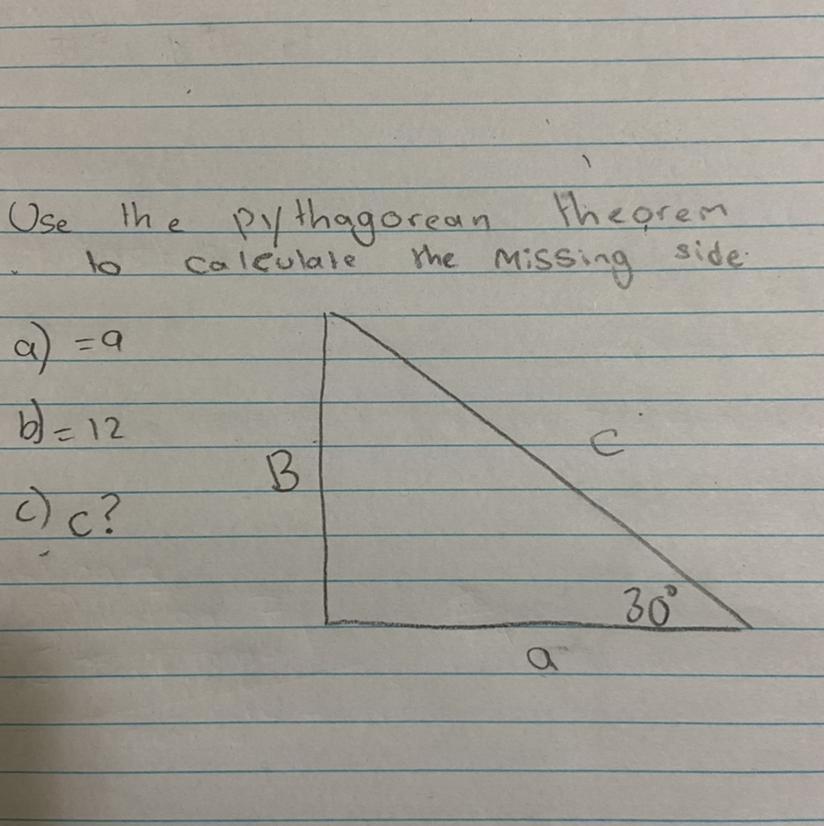 Use the pythagorean theorem
to calculate the missing side.
a) = 9
b) = 12
B
c
c) c?
30°
a